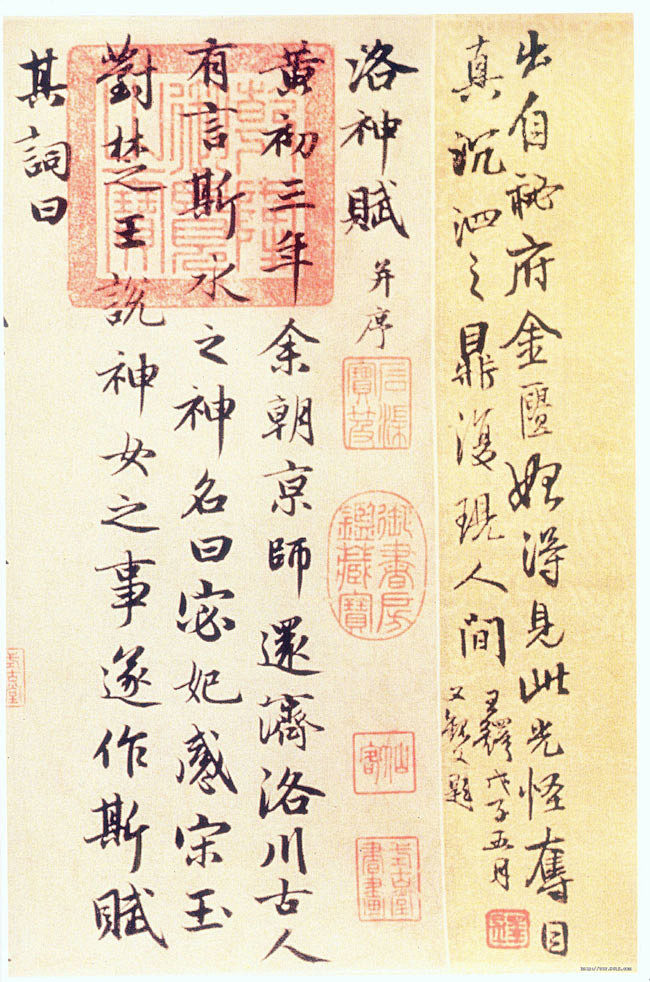 出自秘府金匱始得見此光怪奪目
真沉泗之鼎復現人間
王鐸戊子五月
洛神賦 并序
黃初三年余朝京師還濟洛川古人
有言斯水之神名曰宓妃感宋玉
對楚王說神女之事遂作斯賦
其詞曰
石渠寶笈
御書房鑑藏寶
仙客
式古堂書畫
式古堂